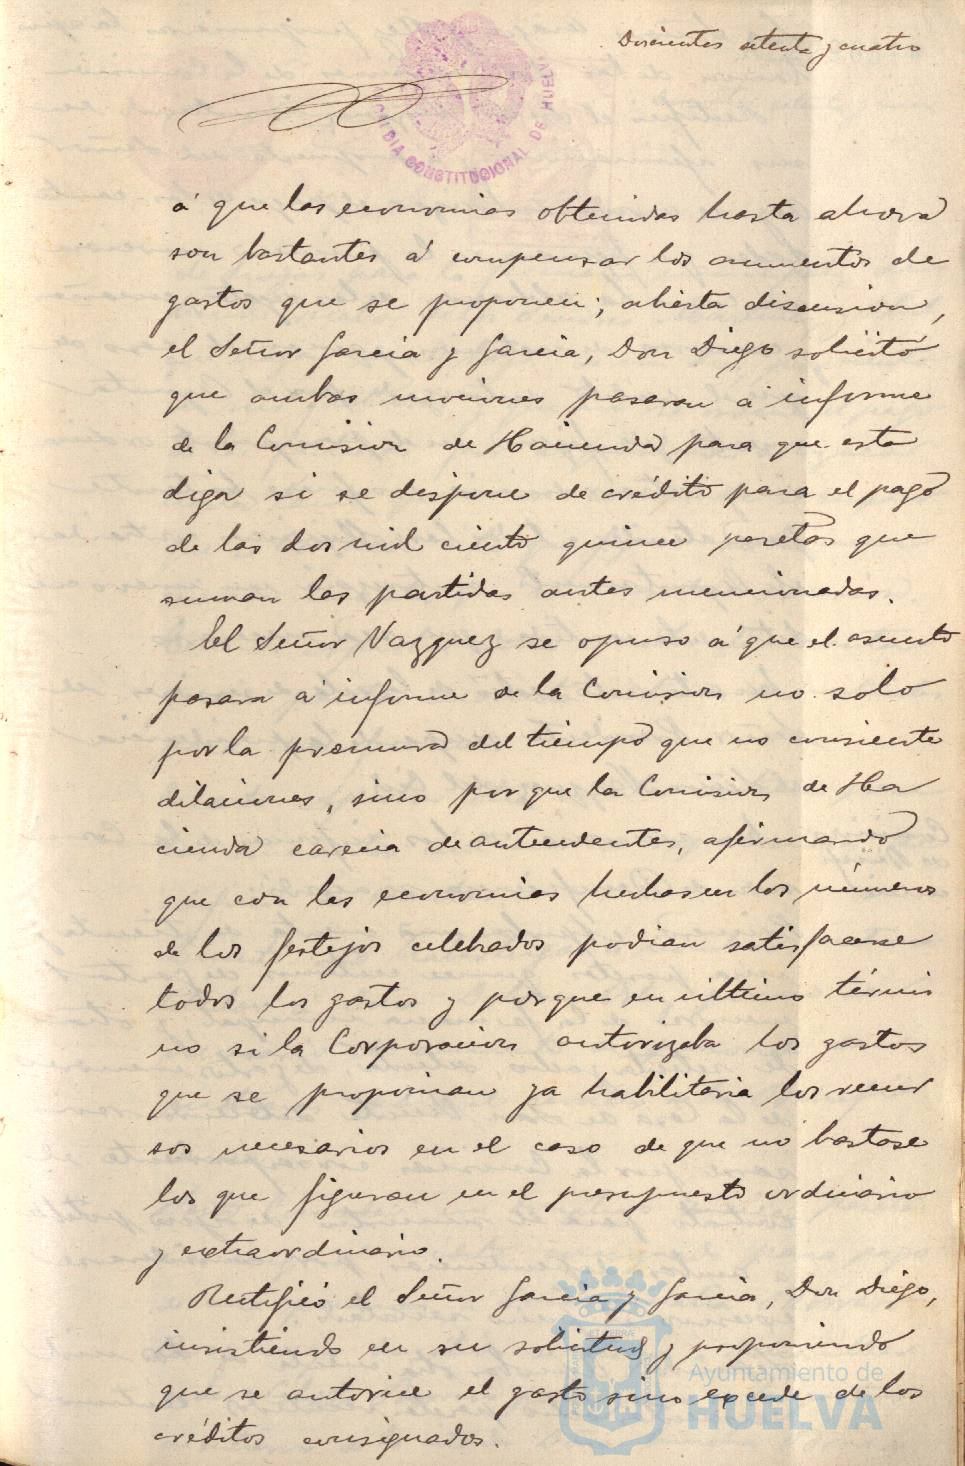 Doscientos setenta y cuatro
ALCALDIA CONSTITUCIONAL DE HUELVA
á que las economias obtenidas hasta ahora
son bastantes á compensar los aumentos de
gastos que se proponen; abierta discusion,
el Señor Garcia y Garcia, Don Diego solicitó
que ambas mociones pasaran á informe
de la Comision de Hacienda para que esta
diga si se dispone de crédito para el pago
de las dos mil ciento quince pesetas que
suman las partidas antes mencionadas.
El Señor Vazquez se opuso á que el asunto
pasara á informe de la Comision no solo
por la premura del tiempo que no consiente
dilaciones, sino por que la Comision de Ha
cienda carecia de antecedentes, afirmando
que con las economias hechas en los números
de los festejos celebrados podian satisfacerse
todos los gastos y porque en último térmi
no si la Corporacion autorizaba los gastos
que se proponian ya habilitaria los recur
sos necesarios en el caso de que no bastase
los que figuran en el presupuesto ordinario
y extraordinario.
Rectificó el Señor Garcia y Garcia, Don Diego,
insistiendo en su solicitud y proponiendo
que se autorice el gasto sino excede de los
créditos consignados.
Ayuntamiento de
HUELVA